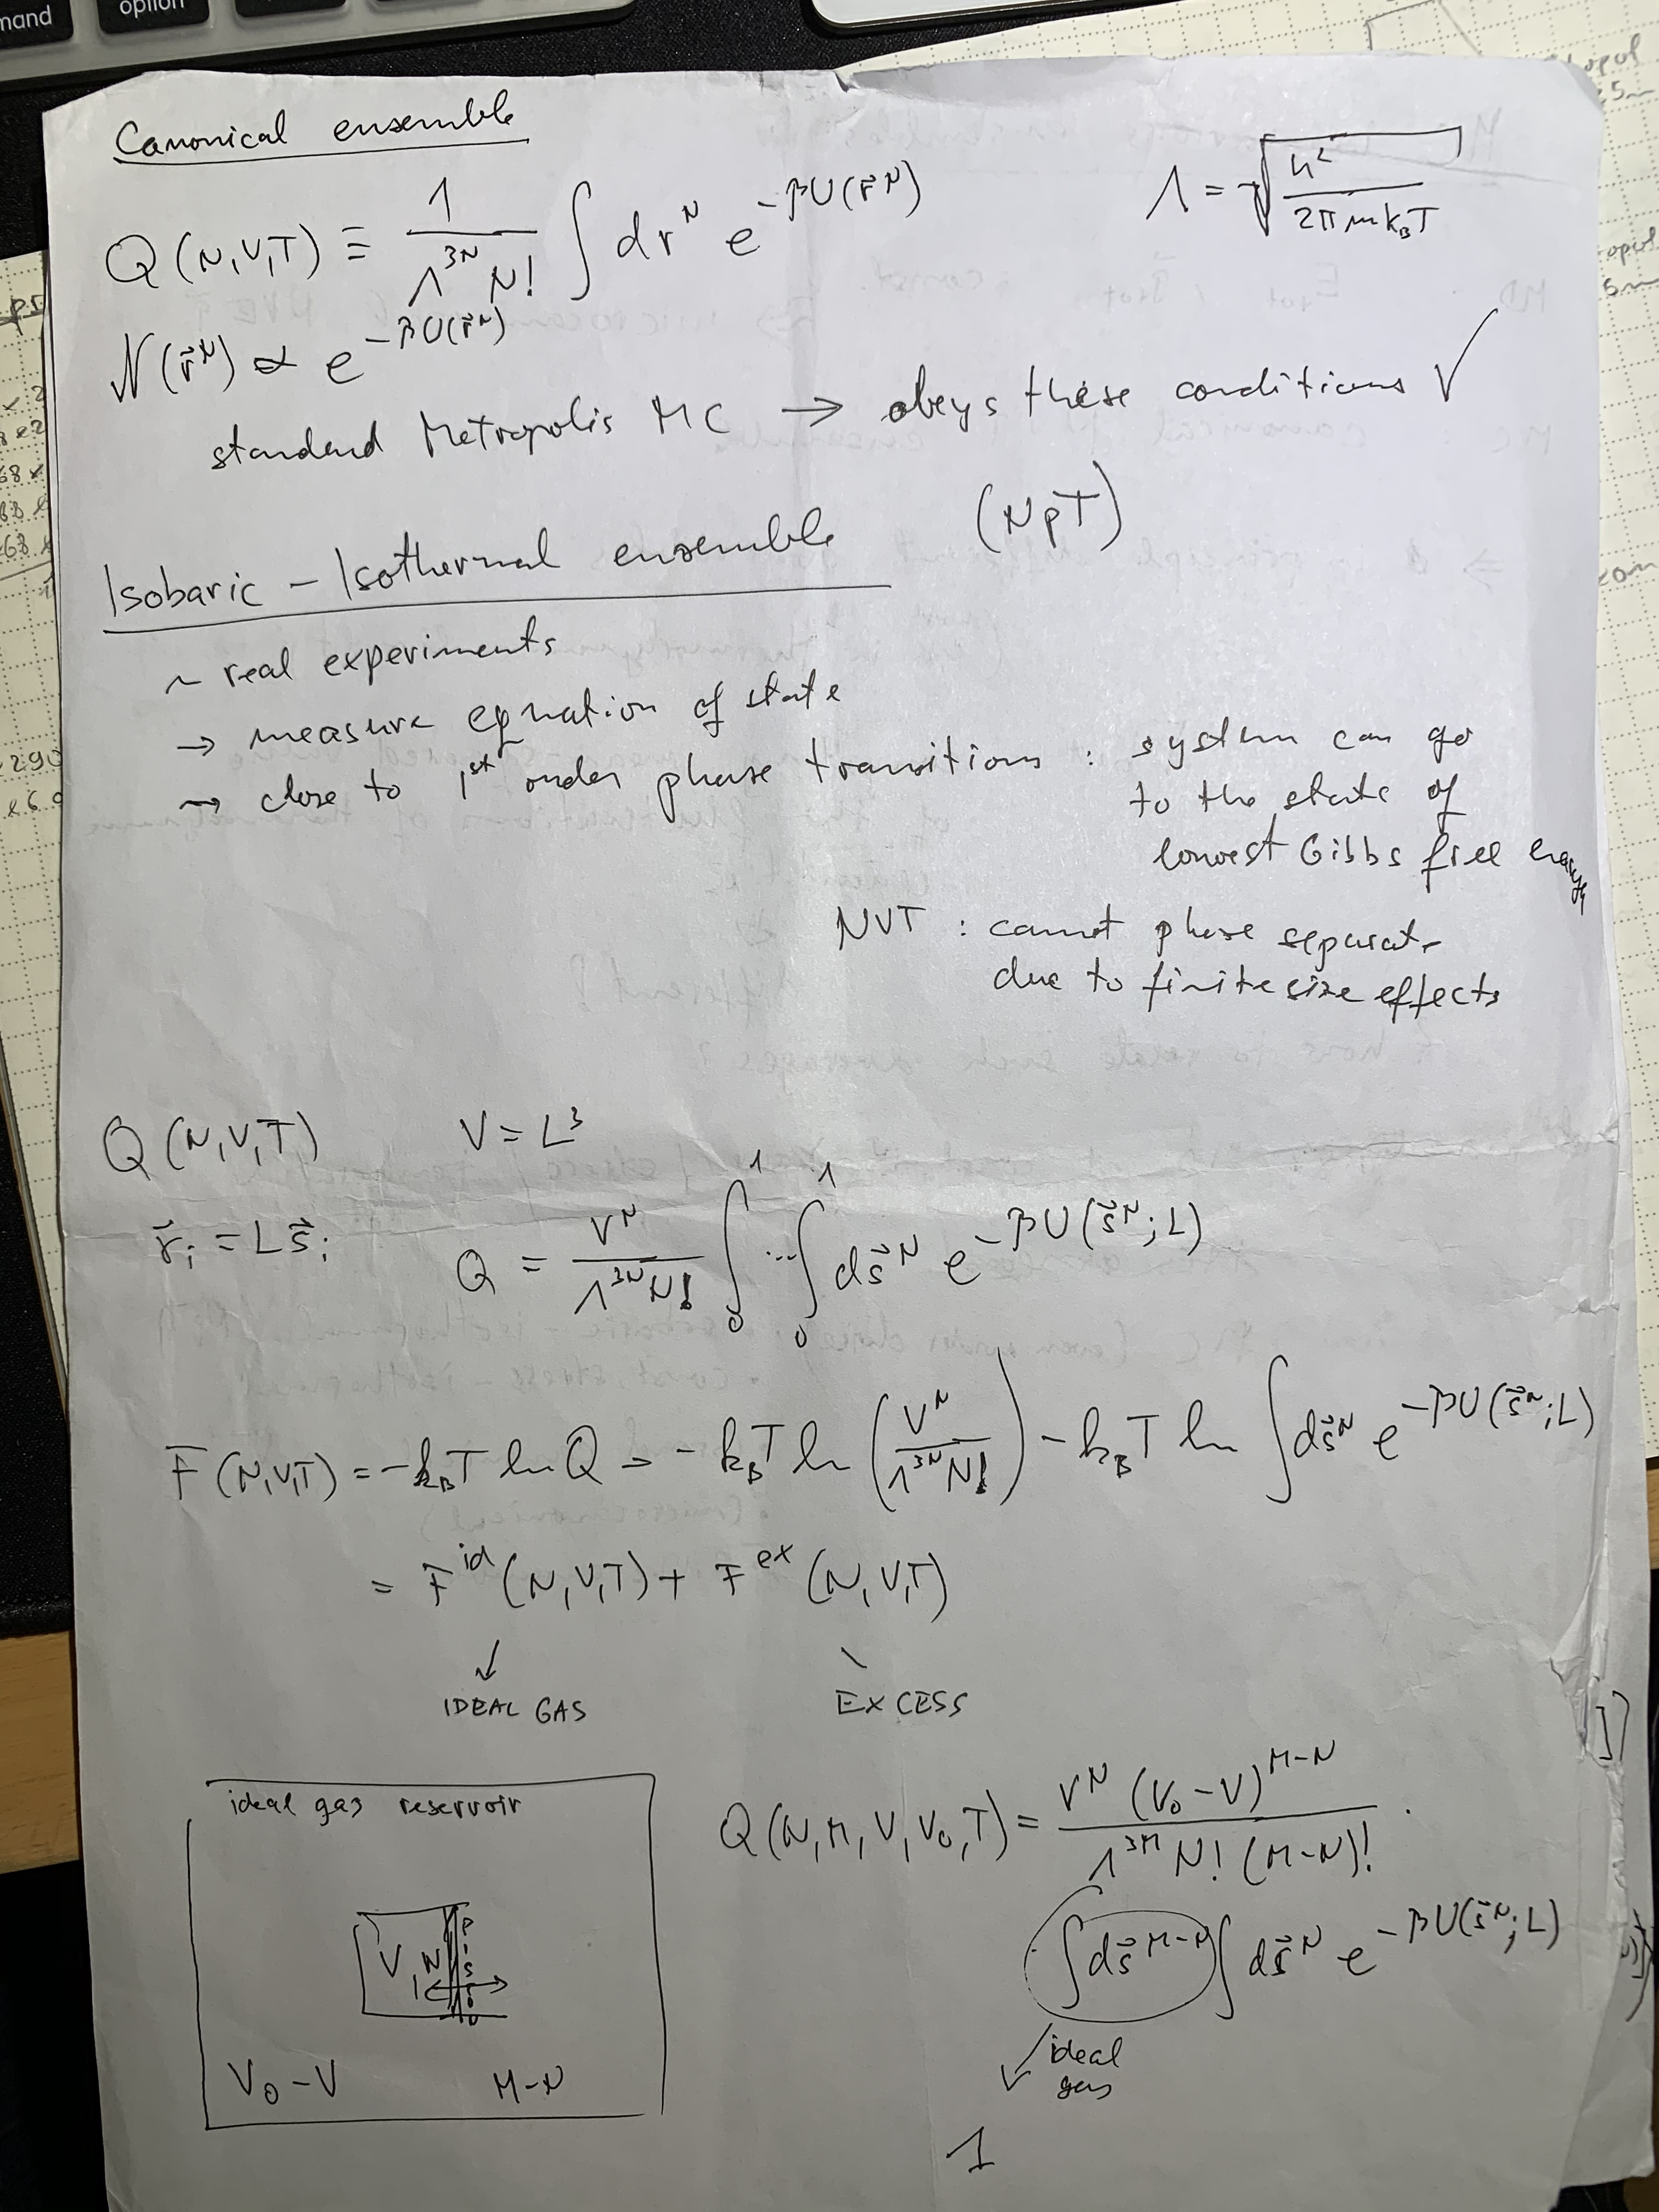 mand
option
Canonical ensemble
Q (N,V,T) ≡ 1/(Λ^{3N} N!) ∫ dr^N e^{-βU(r⃗^N)}
Λ = √(h²/(2π m k_B T))
𝒩(r⃗^N) ∝ e^{-βU(r⃗^N)}
standard Metropolis MC → obeys these conditions ✓
Isobaric - Isothermal ensemble (NpT)
~ real experiments
→ measure equation of state
→ close to 1st order phase transitions : system can go
to the state of
lowest Gibbs free energy
NVT : cannot phase separate
due to finite size effects
Q (N,V,T) V = L³
r⃗_i = L s⃗_i Q = V^N/(Λ^{3N} N!) ∫_0^1 ... ∫_0^1 ds⃗^N e^{-βU(s⃗^N; L)}
F (N,V,T) = -k_B T ln Q = -k_B T ln (V^N/(Λ^{3N} N!)) - k_B T ln ∫ ds⃗^N e^{-βU(s⃗^N; L)}
= F^{id} (N,V,T) + F^{ex} (N,V,T)
IDEAL GAS EXCESS
ideal gas reservoir
V, N
piston
V₀-V M-N
Q(N,M,V,V₀,T) = V^N (V₀-V)^{M-N}/(Λ^{3M} N! (M-N)!) ·
∫ds⃗^{M-N} ∫ ds⃗^N e^{-βU(s⃗^N; L)}
ideal
gas
1